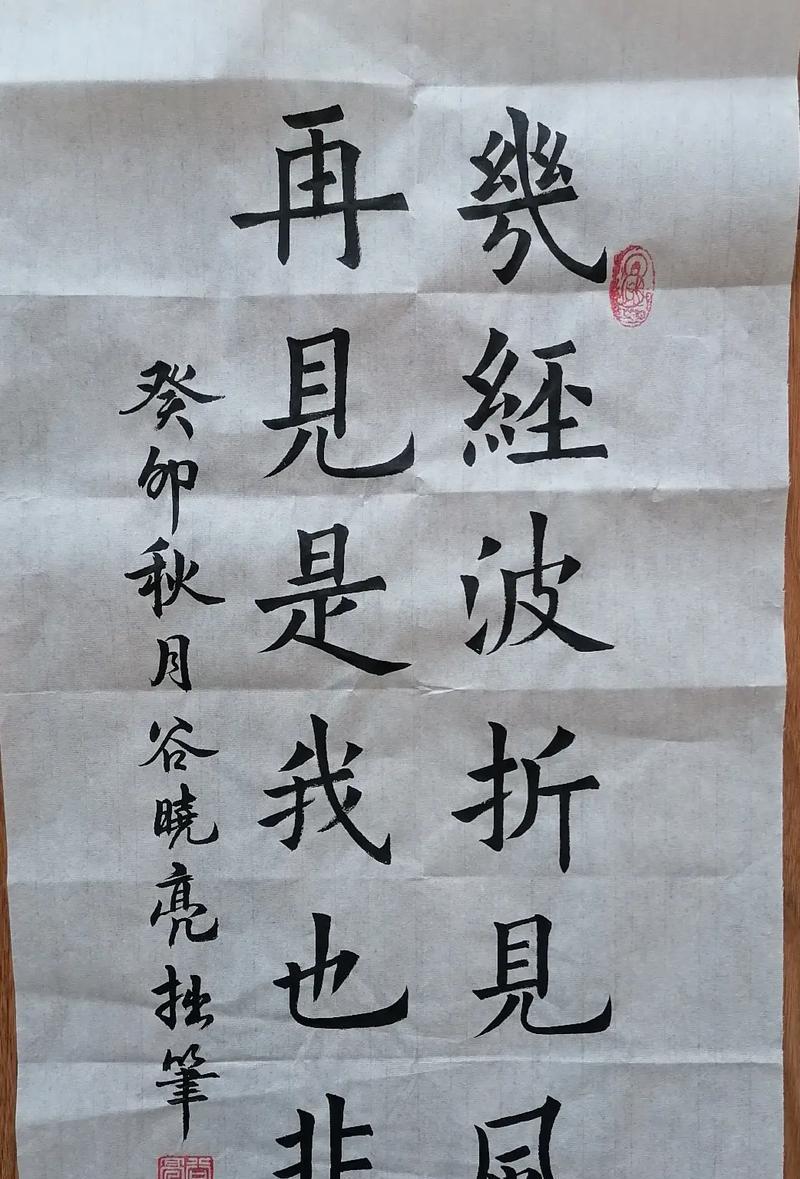 幾經波折見風
再見是我也非
癸卯秋月谷曉亮拙筆